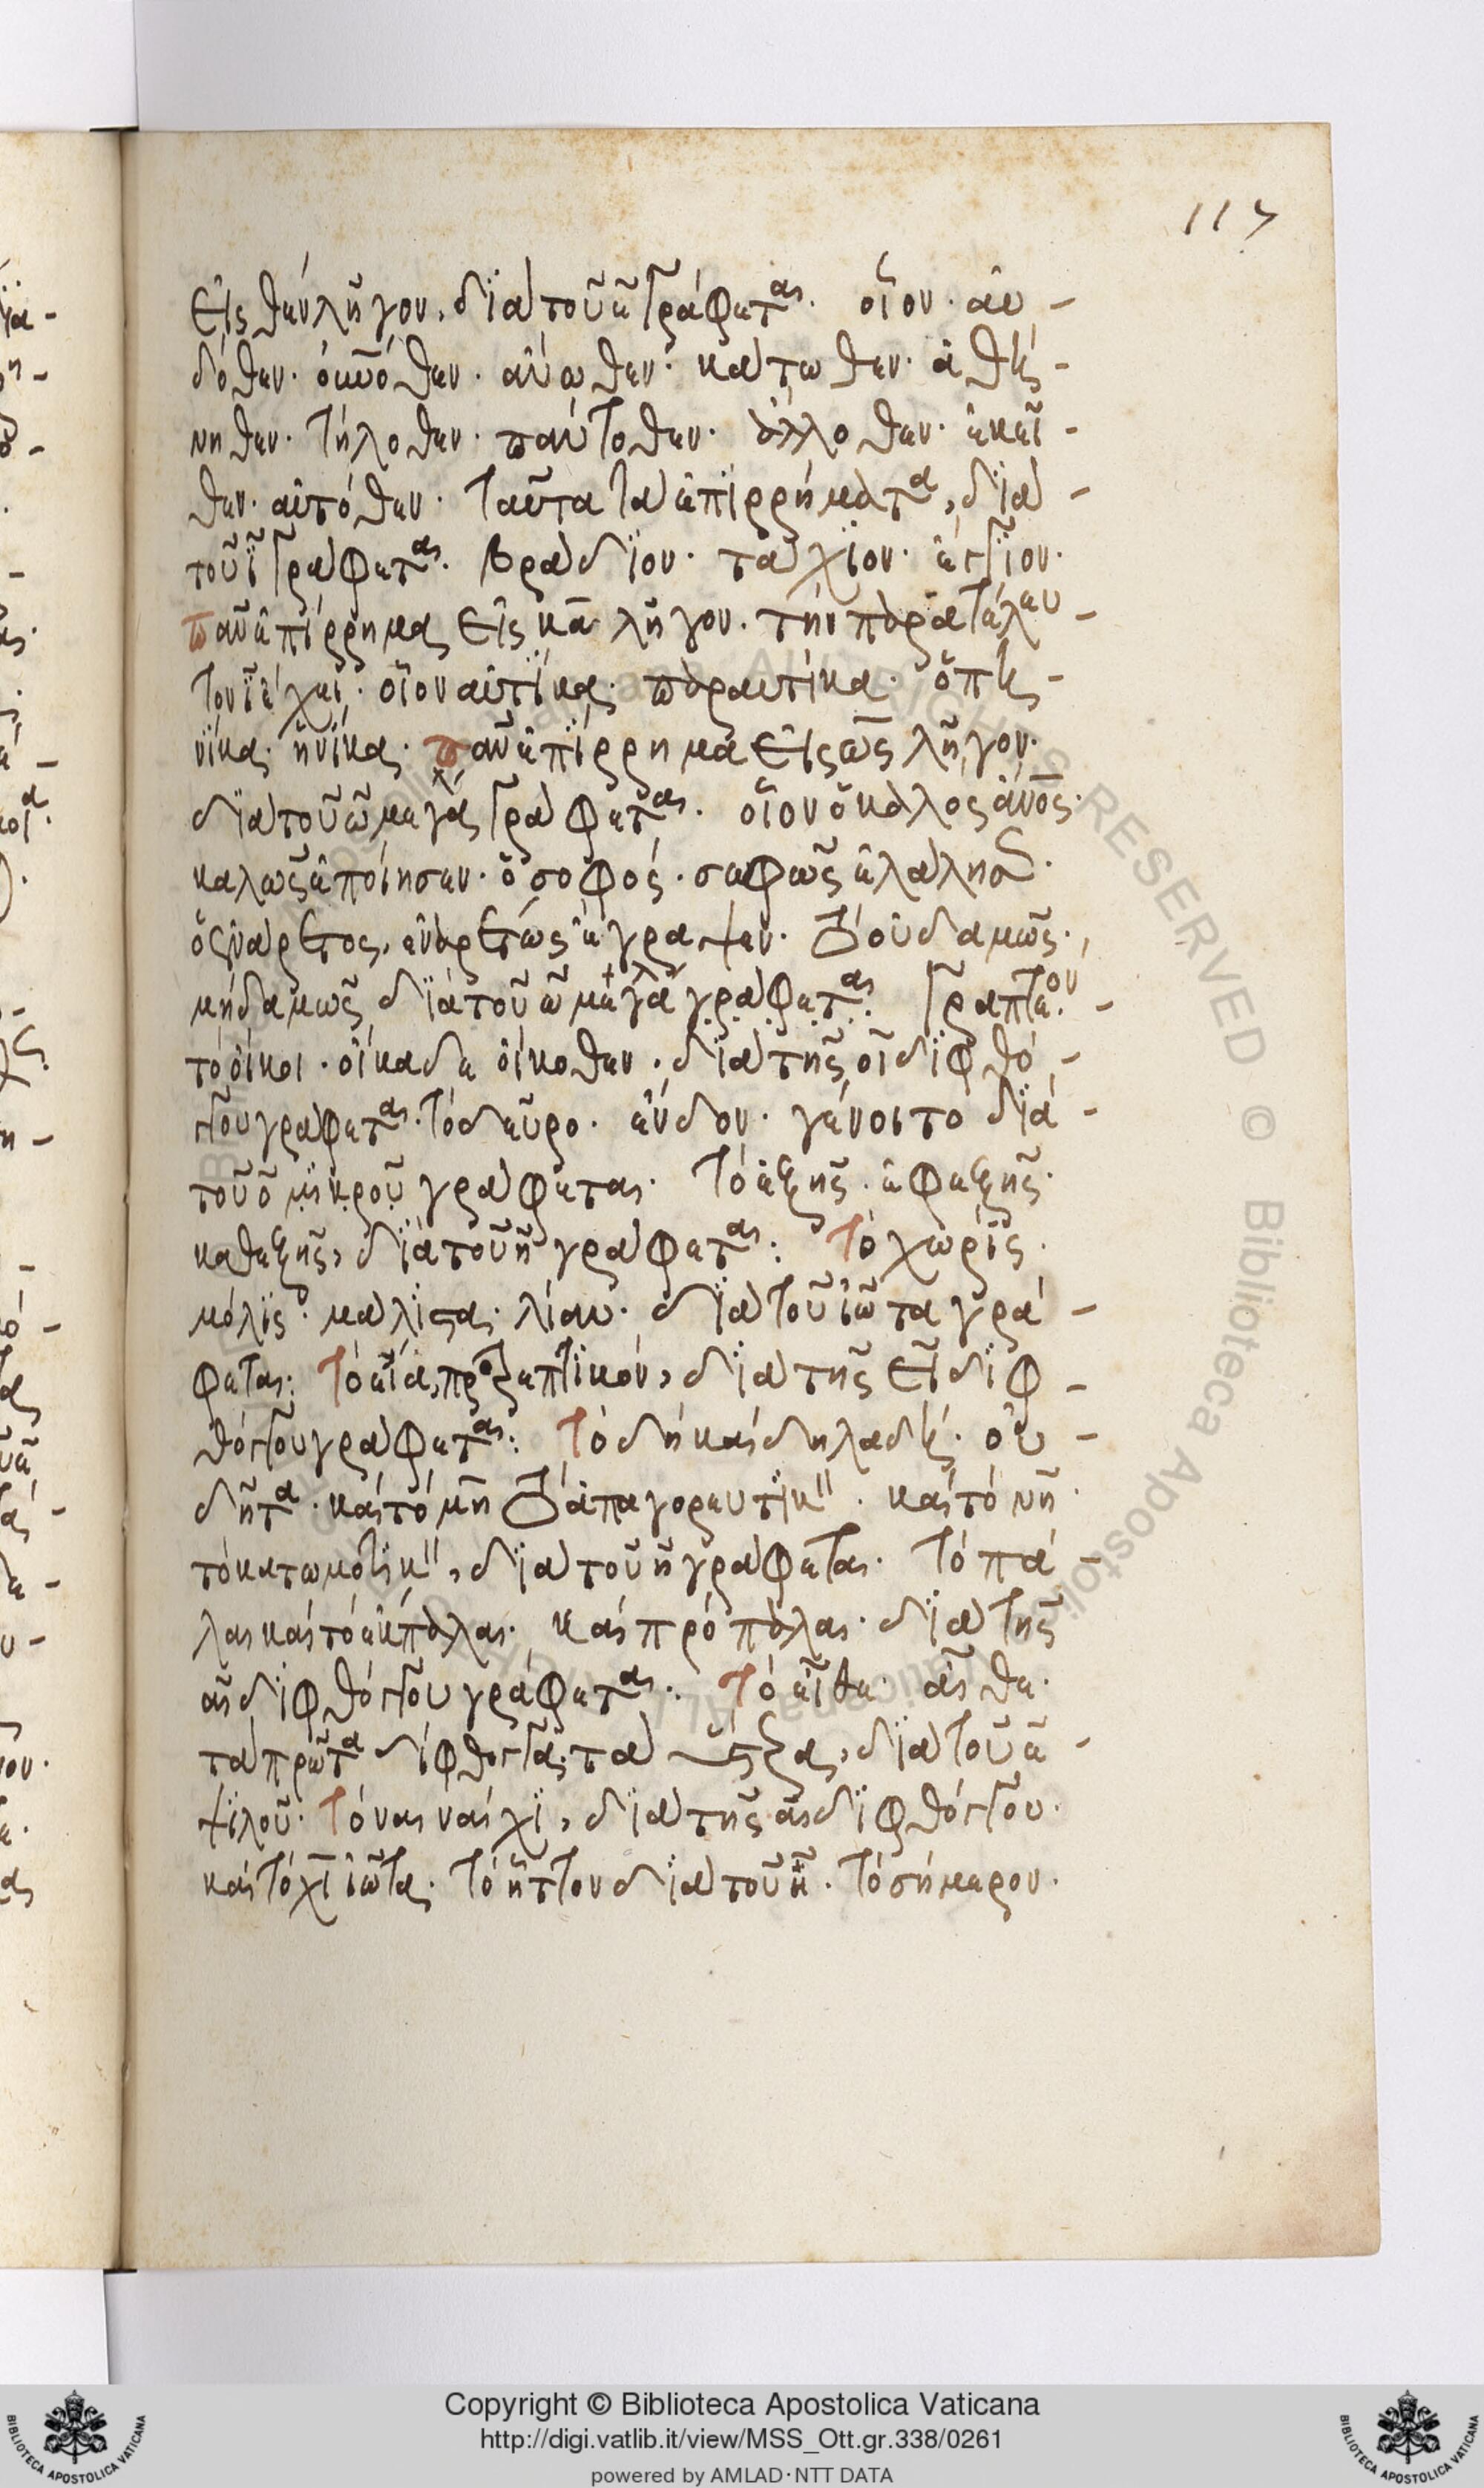 117
εἰς θεν λῆγον, διὰ τοῦ ε̄ γράφεται. οἷον. ἐν -
δόθεν. ἄνωθεν. κάτωθεν. ἀθή -
νηθεν. τήλοθεν. πάντοθεν. ἄλλοθεν. ἐκεῖ -
θεν. αὐτόθεν. ταῦτα τὰ ἐπιρρήματα, διὰ -
τοῦ ϊ γράφεται. βράδϊον. τάχϊον. ἔγγϊον.
πᾶν ἐπίρρημα εἰς κα λῆγον. τὴν παρατέλευ -
τον ϊ ἔχει. οἷον αὐτίκα. παραυτίκα. ὁπη -
νίκα. ἡνίκα. πᾶν ἐπίρρημα εἰς ως λῆγον.
διὰ τοῦ ω μεγάλου γράφεται. οἷον ὁ καλὸς ἄνος.
καλῶς ἐποίησεν. ὁ σοφός. σοφῶς ἐλάλησεν.
ὁ ἐνάρετος, ἐναρέτως ἔγραψεν. τὸ οὐδαμῶς.
μηδαμῶς διὰ τοῦ ω μεγάλου γράφεται. γραπτέον.
τὸ οἴκοι. οἴκαδε οἴκοθεν. διὰ τῆς οι διφθό -
γγου γράφεται. τὸ δεῦρο. ἔνδον. γένοιτο διὰ -
τοῦ ο μικροῦ γράφεται. τὸ ἑξῆς. ἐφεξῆς.
καθεξῆς, διὰ τοῦ η γράφεται: τὸ χωρίς.
μόλϊς. μάλϊστα. λίαν. διὰ τοῦ ἰῶτα γρά -
φεται: τὸ εἶα, προτρεπτικόν, διὰ τῆς ει διφ -
θόγγου γράφεται: τὸ δὴ καὶ δηλαδή. οὐ -
δῆτα. καὶ τὸ μὴ τὸ ἀπαγορευτικ". καὶ τὸ νὴ
τὸ κατωμοτικ", διὰ τοῦ η γράφεται. τὸ πά -
λαι καὶ τὸ ἔκπαλαι. καὶ πρόπαλαι. διὰ τῆς
αι διφθόγγου γράφεται. τὸ εἶθε. αἶθε.
τὰ πρῶτα διφθογγα. τὰ ὕστερα, διὰ τοῦ ε̄ -
ψιλοῦ. τὸ ναι ναίχι, διὰ τῆς αι διφθόγγου.
καὶ τὸ χϊ ἰῶτα. τὸ ἧττον διὰ τοῦ η. τὸ σήμερον.
Copyright © Biblioteca Apostolica Vaticana
http://digi.vatlib.it/view/MSS_Ott.gr.338/0261
powered by AMLAD·NTT DATA